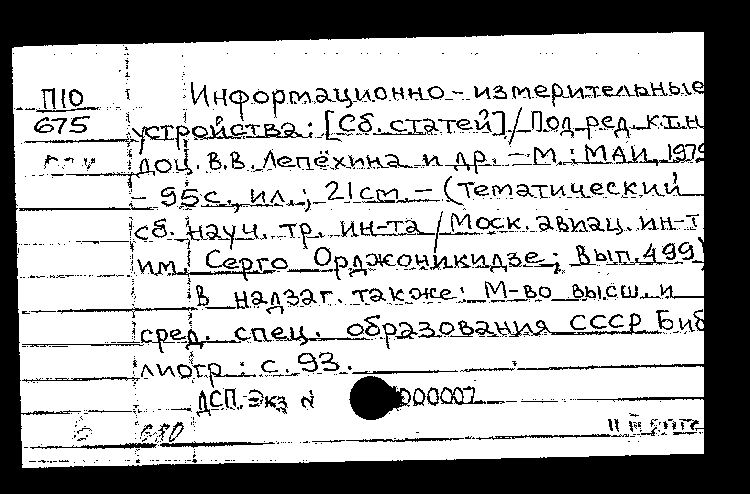 П10
675
Информационно-измерительные
устройства: [Сб. статей]/Под ред. к.т.н
доц. В.В. Лепёхина и др. – М.: МАИ, 1979
– 95с., ил.; 21см. – (Тематический
сб. науч. тр. ин-та / Моск. авиац. ин-т
им. Серго Орджоникидзе; Вып. 499)
В надзаг. также: М-во высш. и
сред. спец. образования СССР Биб
лиогр: с. 93.
ДСП. Экз N 000007
6 680